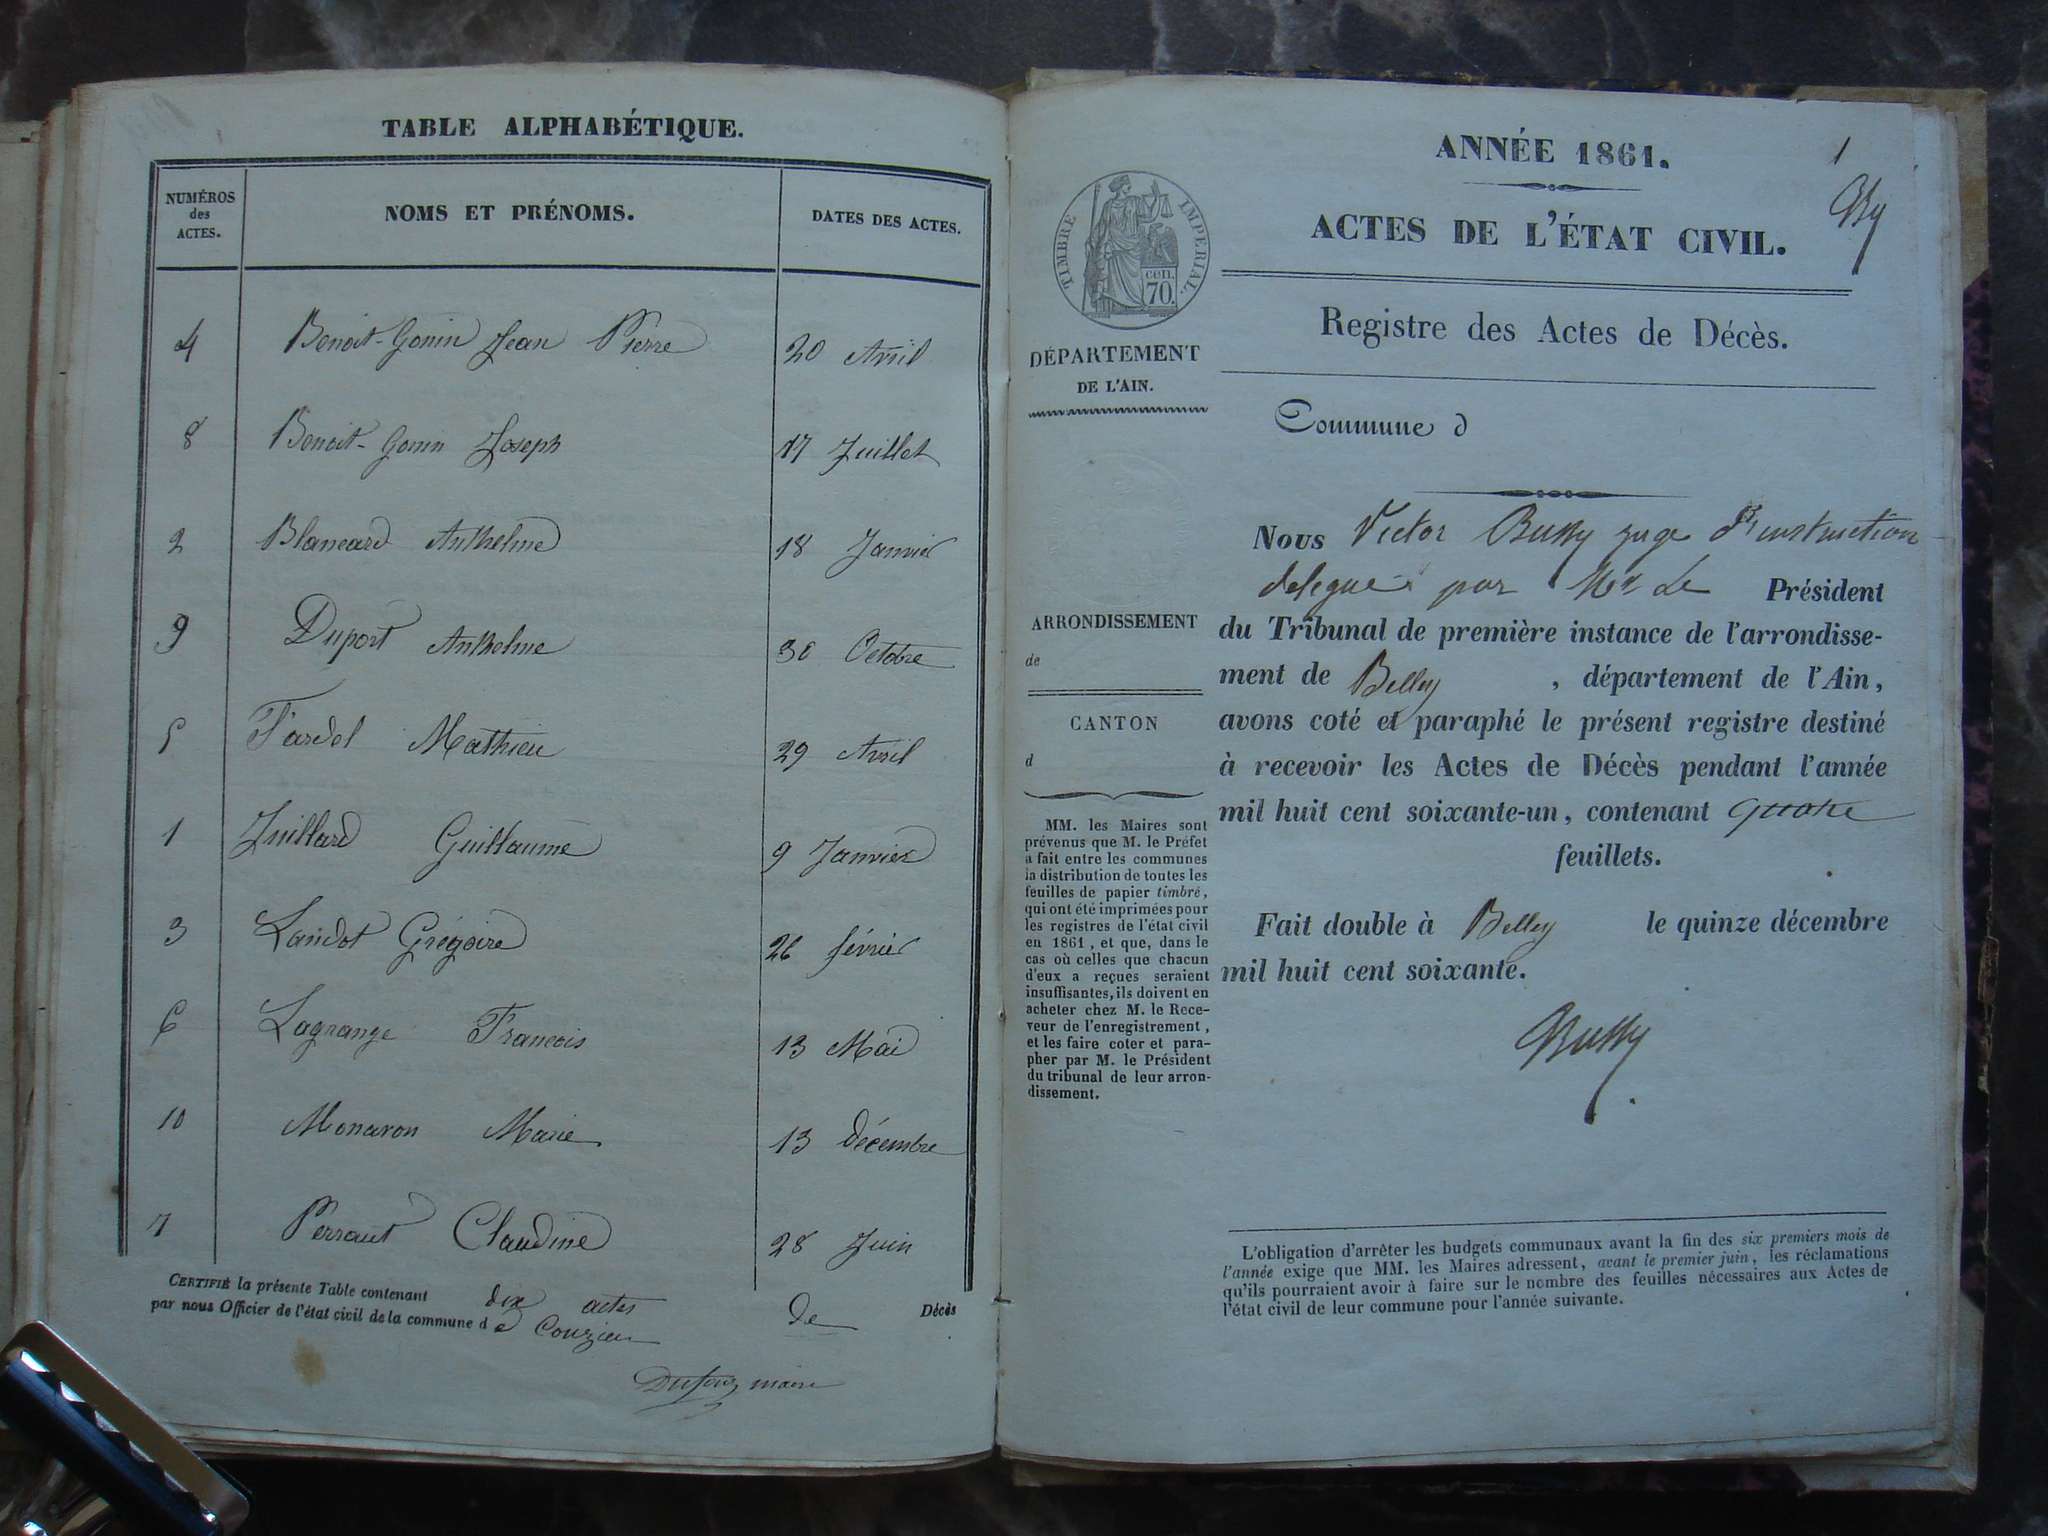 TABLE ALPHABÉTIQUE.
NUMÉROS des ACTES.
NOMS ET PRÉNOMS.
DATES DES ACTES.
4 Benoit-Gonin Jean Pierre 20 Avril
8 Benoit-Gonin Joseph 17 Juillet
2 Blancard Anthelme 18 Janvier
9 Duport Anthelme 30 Octobre
5 Fardel Mathieu 29 Avril
1 Juillard Guillaume 9 Janvier
3 Landot Grégoire 26 février
6 Lagrange Francois 13 Mai
10 Monavon Marie 13 décembre
7 Perraut Claudine 28 Juin
CERTIFIÉ la présente Table contenant dix actes de Décès
par nous Officier de l'état civil de la commune d e Conzieu
maire
ANNÉE 1861.
1
By
ACTES DE L'ÉTAT CIVIL.
TIMBRE IMPERIAL.
cen.
70.
Registre des Actes de Décès.
DÉPARTEMENT
DE L'AIN.
Commune d
ARRONDISSEMENT
de
CANTON
d
MM. les Maires sont
prévenus que M. le Préfet
a fait entre les communes
la distribution de toutes les
feuilles de papier timbré,
qui ont été imprimées pour
les registres de l'état civil
en 1861, et que, dans le
cas où celles que chacun
d'eux a reçues seraient
insuffisantes, ils doivent en
acheter chez M. le Rece-
veur de l'enregistrement,
et les faire coter et para-
pher par M. le Président
du tribunal de leur arron-
dissement.
Nous Victor Bussy juge d'instruction
delegué par Mr Le Président
du Tribunal de première instance de l'arrondisse-
ment de Belley , département de l'Ain,
avons coté et paraphé le présent registre destiné
à recevoir les Actes de Décès pendant l'année
mil huit cent soixante-un, contenant quatre
feuillets.
Fait double à Belley le quinze décembre
mil huit cent soixante.
Bussy
L'obligation d'arrêter les budgets communaux avant la fin des six premiers mois de
l'année exige que MM. les Maires adressent, avant le premier juin, les réclamations
qu'ils pourraient avoir à faire sur le nombre des feuilles nécessaires aux Actes de
l'état civil de leur commune pour l'année suivante.